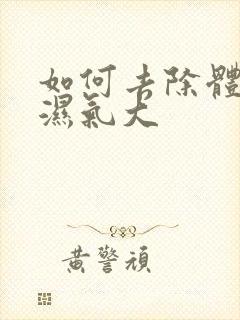 如何去除體
濕氣大
黃警頑